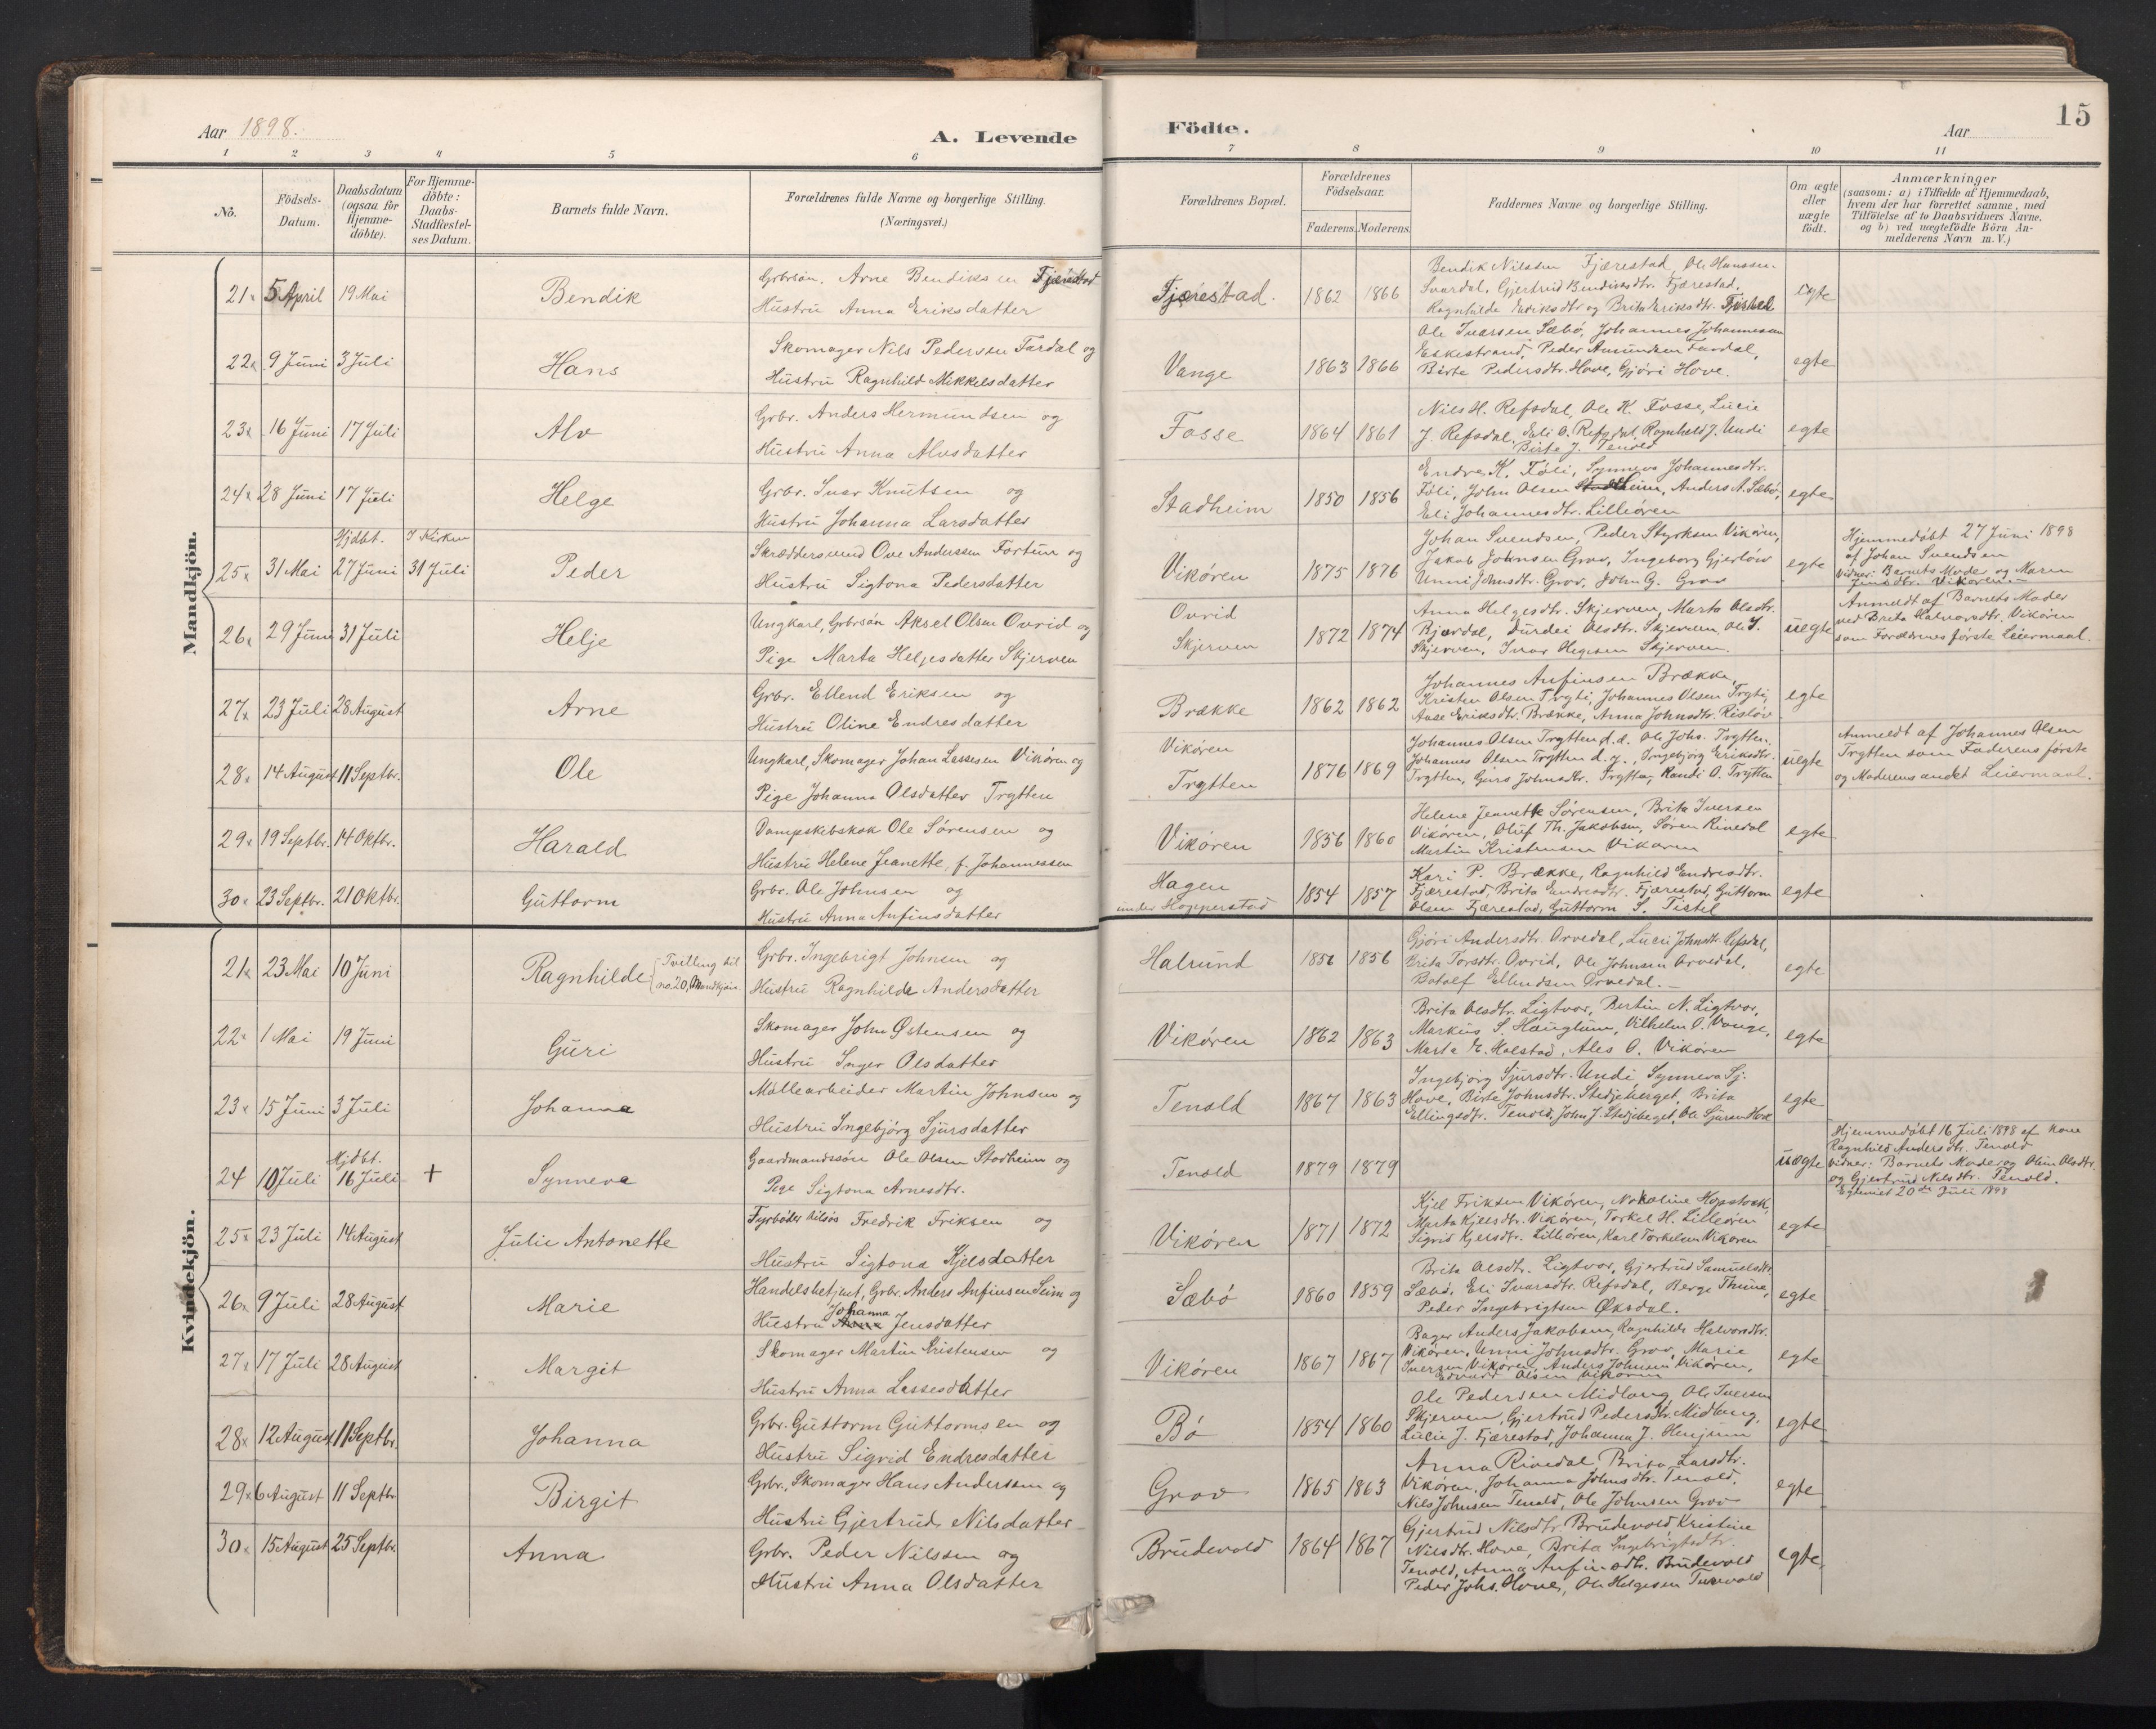 Aar 1898.
A. Levende
Födte.
Aar
15
1 2 3 4 5 6 7 8 9 10 11
No.
Födsels-Datum.
Daabsdatum (ogsaa för Hjemme-döbte).
For Hjemme-döbte: Daabs-Stadfæstel-ses Datum.
Barnets fulde Navn.
Forældrenes fulde Navne og borgerlige Stilling.
(Næringsvei.)
Forældrenes Bopæl.
Forældrenes Födselsaar.
Faderens. Moderens.
Faddernes Navne og borgerlige Stilling.
Om ægte eller uægte födt.
Anmærkninger
(saasom: a) i Tilfælde af Hjemmedaab, hvem der har forrettet samme, med Tilföielse af to Daabsvidners Navne, og b) ved uægtefödte Börn An-melderens Navn m.V.)
Mandkjön.
21 5 April 19 Mai Bendik
Grbrsön. Arne Bendiksen Fjærestad
Hustru Anna Eriksdatter
Fjærestad. 1862 1866
Bendik Nilssen Fjærestad, Ole Hanssen
Svardal, Gjertrud Bendiksdtr. Fjærestad,
Ragnhilde Eriksdtr og Brita Eriksdtr.
egte
22 9 Juni 3 Juli Hans
Skomager Nils Pedersen Fardal og
Hustru Ragnhild Mikkelsdatter
Vange 1863 1866
Ole Ivarsen Sæbö, Johannes Johannessen
Eskestrand, Peder Amundsen Fardal,
Birte Pedersdtr. Hove, Gjöri Hove.
egte
23 16 Juni 17 Juli Alv
Grbr. Anders Hermundsen og
Hustru Anna Alvsdatter
Fosse 1864 1861
Nils H. Refsdal, Ole K. Fosse, Lucie
J. Refsdal, Eli O. Refsdal, Ragnhild J. Undi
Birte J. Tenold
egte
24 28 Juni 17 Juli Helge
Grbr. Ivar Knutsen og
Hustru Johanna Larsdatter
Stadheim 1850 1856
Endre K. Föli, Synneva Johannesdtr.
Föli, John Olsen Stadheim, Anders A. Sæbö,
Eli Johannesdtr. Lilleören
egte
Hjdbt. I Kirken
25 31 Mai 27 Juni 31 Juli Peder
Skræddersvend Ove Anderssen Fortun og
Hustru Sigtona Pedersdatter
Vikören 1875 1876
Johan Svendsen, Peder Styrksen Vikören,
Jakob Johnsen Grov, Ingeborg Gjerlöw
Unni Johnsdtr. Grov, John G. Grov
egte
Hjemmedöbt 27 Juni 1898
af Johan Svendsen
Vidner: Barnets Moder og Maren
Jensdtr. Vikören.
26 29 Juni 31 Juli Helje
Ungkarl, Grbrsön Aksel Olsen Ovrid og
Pige Marta Helgesdatter Skjerven
Ovrid
Skjerven 1872 1874
Anna Helgesdtr. Skjerven, Marta Olsdtr.
Olsdtr. Skjerven, Ole
Skjerven, Ivar Skjerven.
uegte
Anmeldt af Barnets Moder
ved Brita Halvorsdtr. Vikören
som Forældrenes förste Leiermaal.
27 23 Juli 28 August Arne
Grbr. Ellend Eriksen og
Hustru Oline Endresdatter
Brække 1862 1862
Johannes Anfinsen Brække,
Kristen Olsen Trytti, Johannes Olsen Trytti,
Aase Eriksdtr. Brække, Anna Johnsdtr. Rislöv
egte
28 14 August 11 Septbr. Ole
Ungkarl, Skomager Johan Lassesen Vikören og
Pige Johanna Olsdatter Trytten
Vikören
Trytten 1876 1869
Johannes Olsen Trytten d.æ. Ole Johs. Trytten,
Johannes Olsen Trytten d.y., Ingebjörg Eriksdtr.
Trytten, Guro Johnsdtr. Trytten, Randi O. Trytten
uegte
Anmeldt af Johannes Olsen
Trytten som Faderens förste
og Moderens andet Leiermaal.
29 19 Septbr. 14 Oktbr. Harald
Dampskibskok Ole Sörensen og
Hustru Helene Jeanette, f. Johannessen
Vikören 1856 1860
Helene Jeanette Sörensen, Brita Iversen
Vikören, Oluf Th. Jakobsen, Sören Rinedal
Martin Kristensen Vikören
egte
30 23 Septbr. 21 Oktbr. Guttorm
Grbr. Ole Johnsen og
Hustru Anna Anfinsdatter
Hagen
under Hopperstad 1854 1857
Kari P. Brække, Ragnhild Endresdtr.
Fjærestad, Brita Endresdtr. Fjærestad, Guttorm
Olsen Fjærestad, Guttorm S. Tistel
egte
Kvindekjön.
21 23 Mai 10 Juni Ragnhilde (Tvilling til
no. 20, Mandkjön.
Grbr. Ingebrigt Johnsen og
Hustru Ragnhilde Andersdatter
Halrund 1856 1856
Gjöri Andersdtr. Orvedal, Lucie Johnsdtr. Refsdal,
Brita Torsdtr. Ovrid, Ole Johnsen Orvedal,
Botolf Ellendsen Orvedal.
egte
22 1 Mai 19 Juni Guri
Skomager John Östensen og
Hustru Inger Olsdatter
Vikören 1862 1863
Brita Olsdtr. Ligtvor, Bertin N. Ligtvor,
Markus S. Hauglum, Vilhelm O. Vange,
Marta E. Holstad, Ales O. Vikören
egte
23 15 Juni 3 Juli Johanna
Möllearbeider Martin Johnsen og
Hustru Ingebjörg Sjursdatter
Tenold 1867 1863
Ingebjörg Sjursdtr. Undi Synneva Sj.
Hove, Birte Johnsdtr. Stedjeberget, Brita
Ellingsdtr. Tenold, John J. Stedjeberget, Ole Sjursen Hove
egte
Hjdbt.
24 10 Juli 16 Juli + Synneva
Gaardmandssön Ole Olsen Stadheim og
Pige Sigtona Arnesdtr.
Tenold 1879 1879
uægte
Hjemmedöbt 16 Juli 1898 af Kone
Ragnhild Andersdtr. Tenold
Vidner: Barnets Moder og Oline Olsdtr.
og Gjertrud Nilsdtr. Tenold.
20de Juli 1898
25 23 Juli 14 August Julie Antonette
Fyrböder Fredrik Friksen og
Hustru Sigtona Kjelsdatter
Vikören 1871 1872
Kjel Friksen Vikören, Nikoline Hopstock,
Marta Kjelsdtr. Vikören, Torkel H. Lilleören
Sigrid Kjelsdtr. Lilleören, Karl Torkelsen Vikören
egte
26 9 Juli 28 August Marie
Handelsbetjent, Grbr. Anders Anfinsen Seim og
Johanna
Hustru Anna Jensdatter
Sæbö 1860 1859
Brita Olsdtr. Ligtvor, Gjertrud Samuelsdtr.
Sæbö, Eli Ivarsdtr. Refsdal, Berge Thune,
Peder Ingebrigtsen Öksdal.
egte
27 17 Juli 28 August Margit
Skomager Martin Kristensen og
Hustru Anna Lassesdatter
Vikören 1867 1867
Bager Anders Jakobsen, Ragnhilde Halvorsdtr.
Vikören, Unni Johnsdtr. Grov, Marie
Iversen Vikören, Anders Johnsen Vikören,
Edvard Olsen Vikören
egte
28 12 August 11 Septbr. Johanna
Grbr. Guttorm Guttormsen og
Hustru Sigrid Endresdatter
Bö 1854 1860
Ole Pedersen Midlang, Ole Iversen
Skjerven, Gjertrud Pedersdtr. Midlang,
Lucie J. Fjærestad, Johanna J. Henjum
egte
29 6 August 11 Septbr. Birgit
Grbr. Skomager Hans Anderssen og
Hustru Gjertrude Nilsdatter
Grov 1865 1863
Anna Rinedal Brita Larsdtr.
Vikören, Johanna Johnsdtr. Tenold,
Nils Johnsen Tenold, Ole Johnsen Grov
egte
30 15 August 25 Septbr. Anna
Grbr. Peder Nilssen og
Hustru Anna Olsdatter
Brudevold 1864 1867
Gjertrud Nilsdtr. Brudevold, Kristine
Nilsdtr. Hove, Brita Ingebrigtsdtr.
Tenold, Anna Anfinsdtr. Brudevold
Peder Johs. Hove, Ole Helgesen Turvold
egte